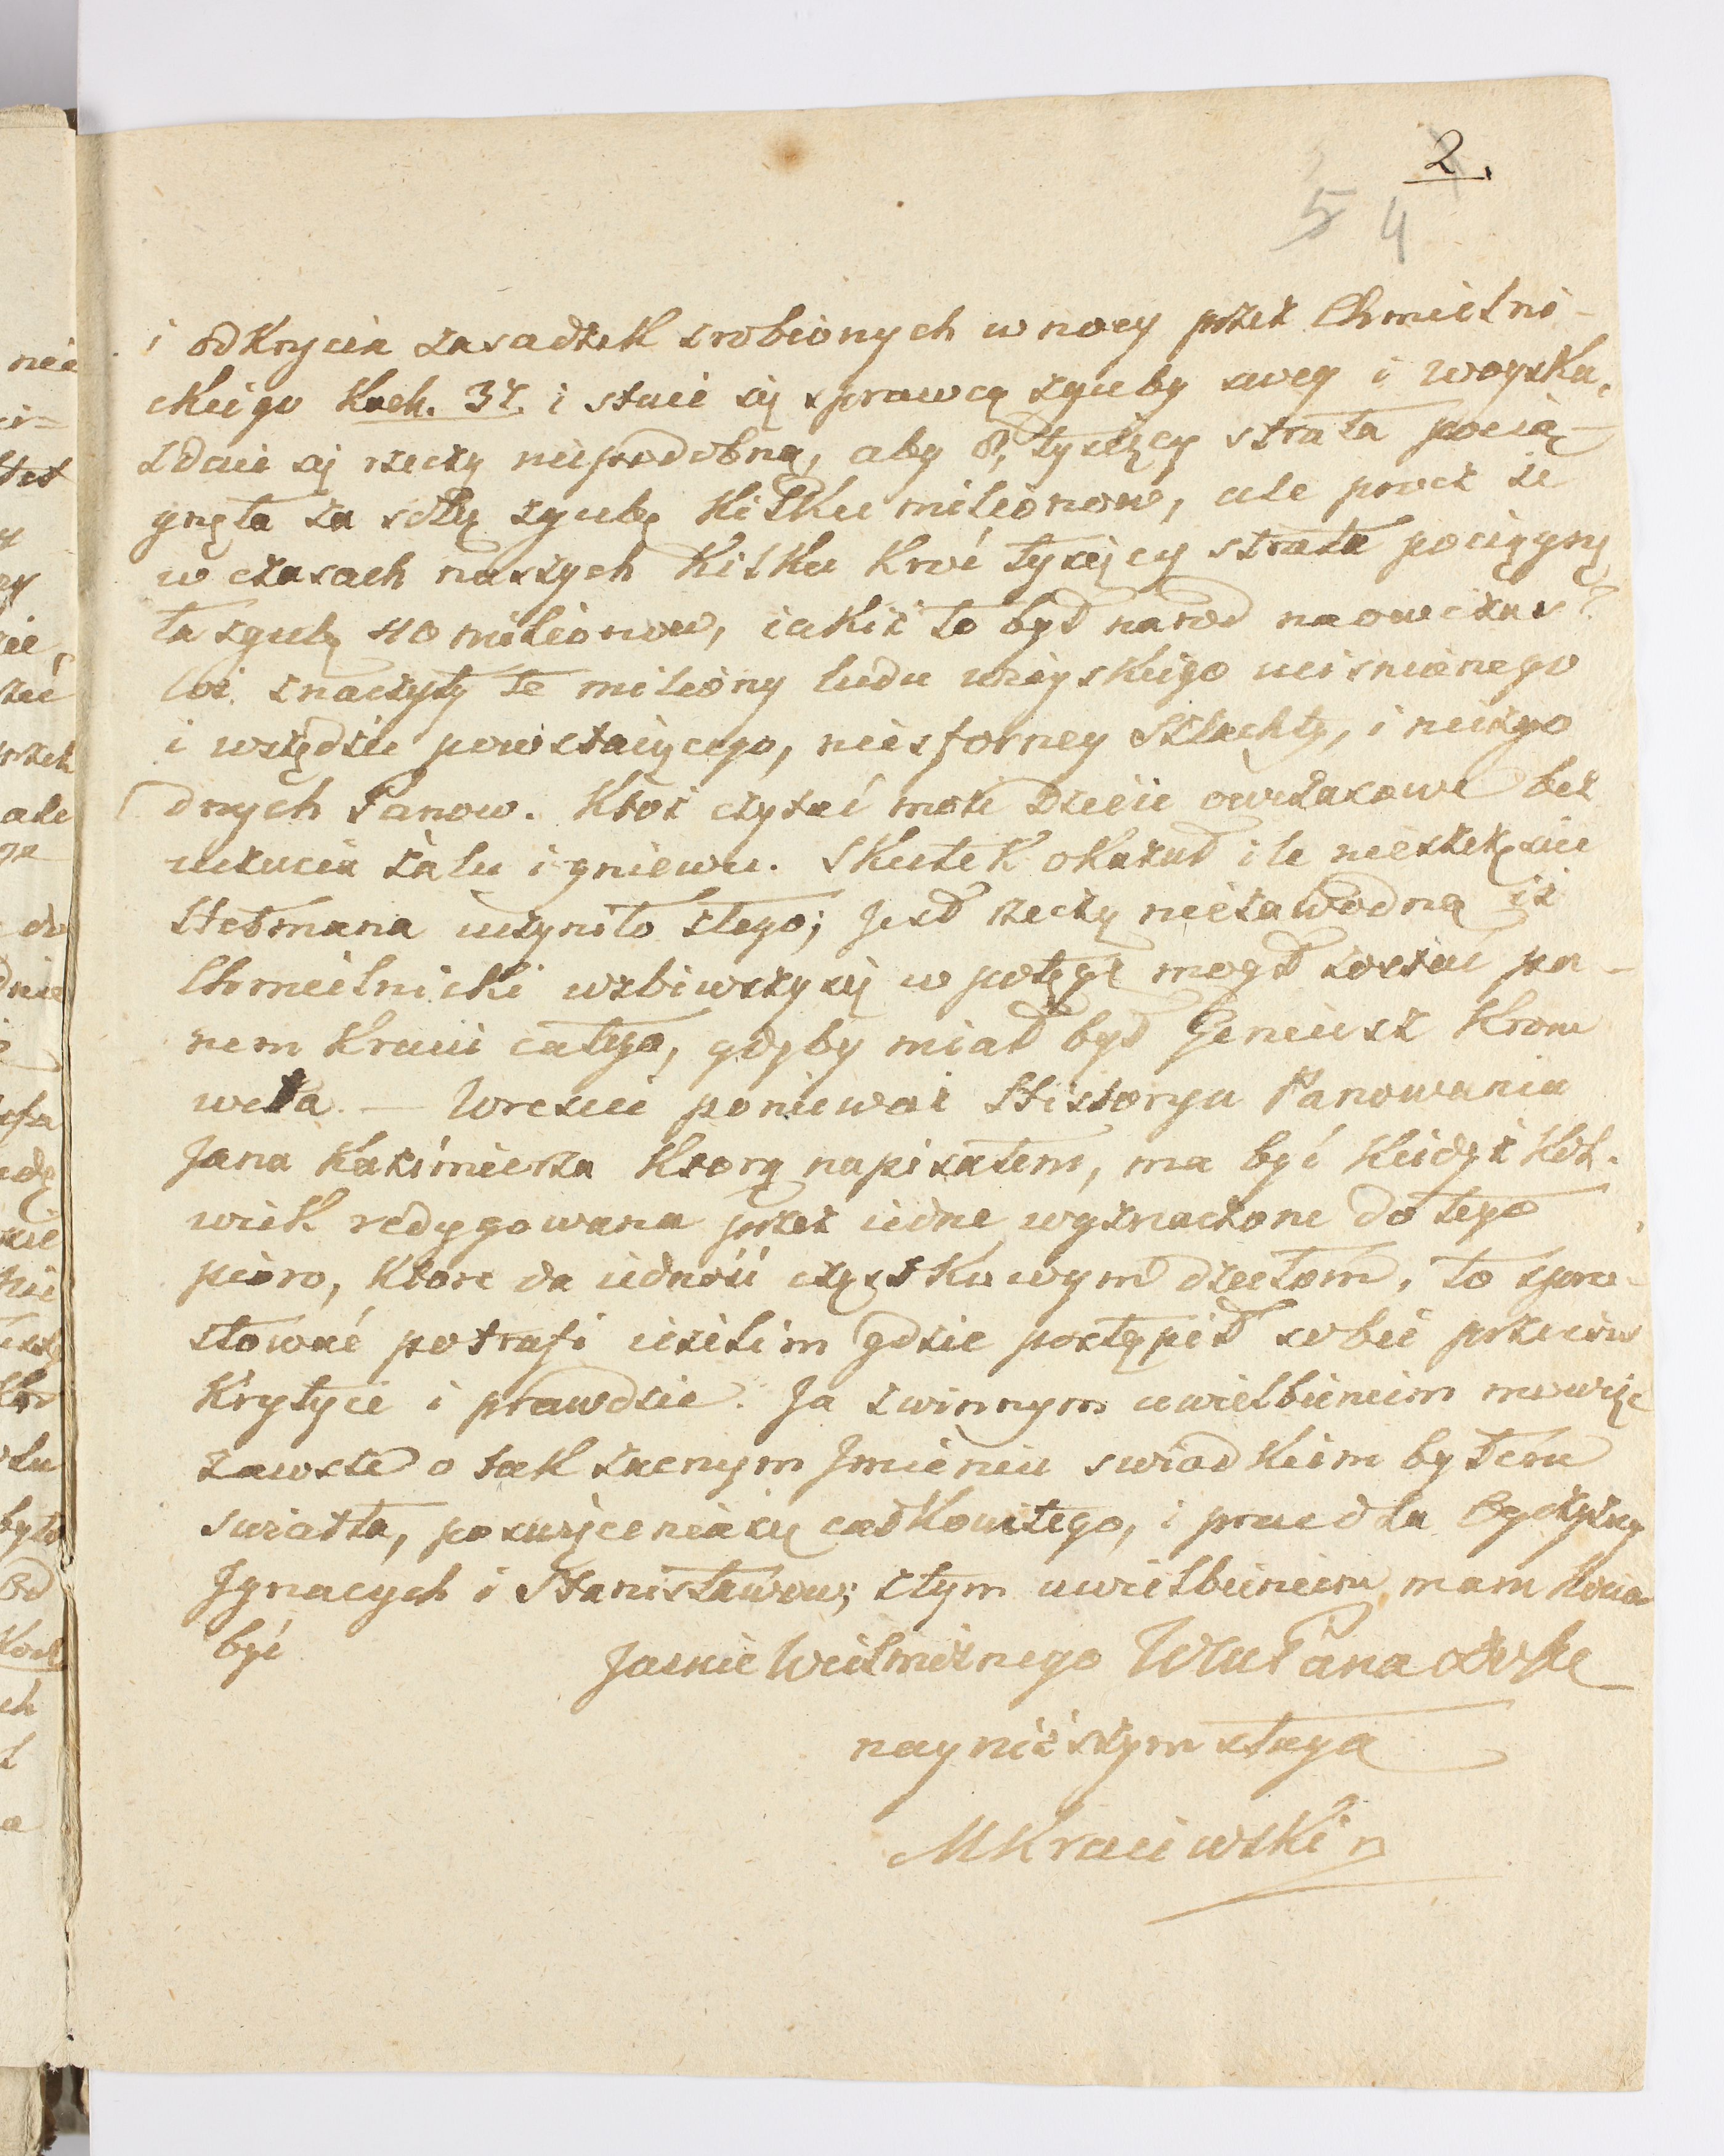 2.
5 4
i odkrycia zasadzek zrobionych w nocy przez Chmielni-
ckiego Koch. 37. i stać się sprawcą zguby swey i woyska,
zdaie się rzeczą niepodobną, aby 8, tysięcy strata pocią-
gnęła za sobą zgubę kilku milionow, ale procz że
w czasach naszych kilku kroć tysięcy strata pociągnę
ła zgubę 40 milionow, iakiż to był narod naowczas?
Coż znaczyły te miliony ludu wieyskiego uciśnionego
i wszędzie powstaiącego, niesforney Szlachty, i niezgo
dnych Panow. Ktoż czytać może Dzieie owczasowe bez
uczucia żalu i gniewu. Skutek okazał ile nieszczęście
Hetmana uczyniło złego; Jest rzeczą niezawodną iż
Chmielnicki wzbiwszy się w potęgę mogł zostać pa-
nem kraiu całego, gdyby miał był Geniusz Krom
wela. — Wreszcie ponieważ Historya Panowania
Jana Kazimierza ktorą napisałem, ma być kiedyż kol-
wiek redygowana przez iedne wyznaczone do tego
pioro, ktore da iedność cząstkowym dziełom, to spro-
stować potrafi ieżelim gdzie postąpił sobie przeciw
krytyce i prawdzie. Ja z winnym uwielbieniem mowię
zawsze o tak zacnym Jmieniu swiadkiem byłem
swiatła, poswięcenia się całkowitego, i prac dla Oyczyzny
Jgnacych i Stanisławow; z tym uwielbieniem mam honor
być
Jasnie Wielmożnego WMPana Dobr
nayniższym sługą
MKraiewski